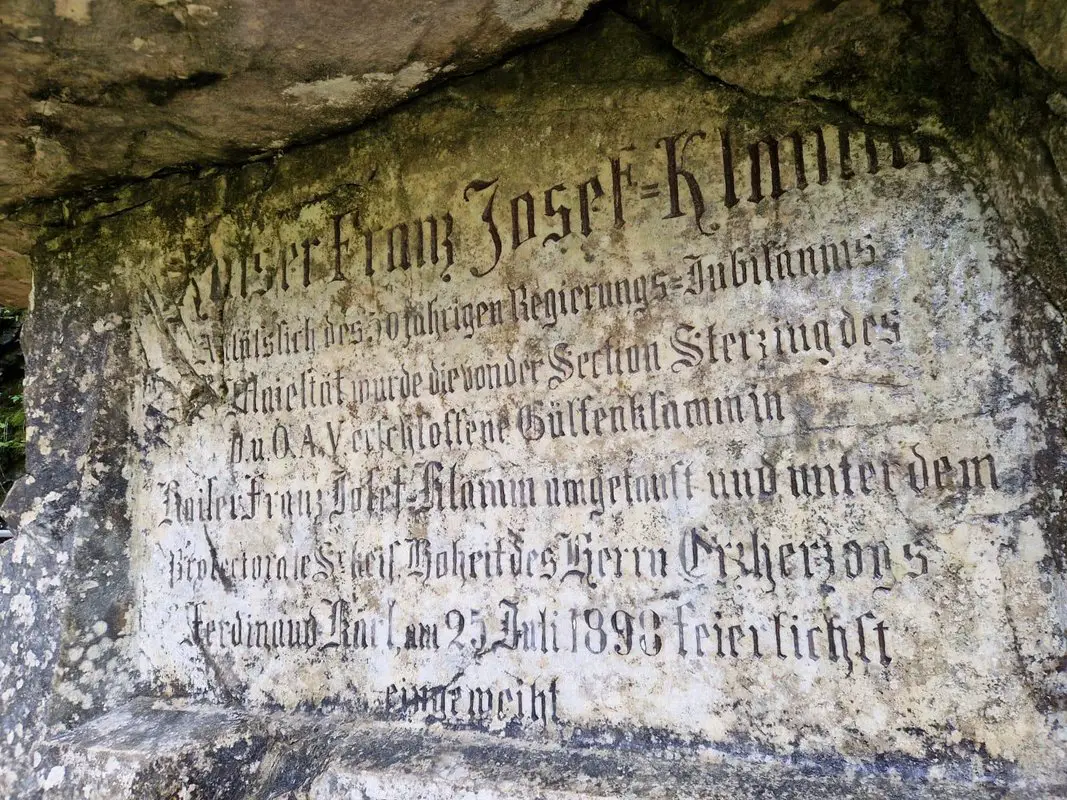 Kaiser Franz Josef=Klamm
Anläßlich des 50 jährigen Regierungs=Jubiläums
Majestät wurde die von der Section Sterzing des
D. u. Ö. A. V. erschlossene Gülfenklamm in
Kaiser Franz Josef=Klamm umgetauft und unter dem
Protectorate Sr. keis. Hoheit des Herrn Erzherzogs
Ferdinand Karl, am 25 Juli 1898 feierlichst
eingeweiht